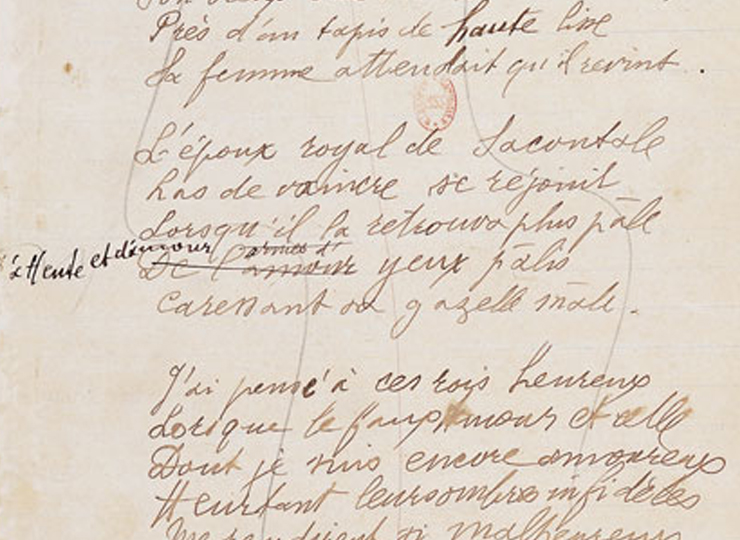 Près d'un tapis de haute lisse
Sa femme attendait qu'il revint.
L'époux royal de Sacontale
Las de vaincre se réjouit
Lorsqu'il la retrouva plus pâle
d'attente et d'amour
De l'amour yeux pâlis
caressant sa gazelle mâle.
J'ai pensé à ces rois heureux
Lorsque le faux Amour et celle
Dont je suis encore amoureux
Heurtant leurs ombres infidèles
Me rendirent si malheureux